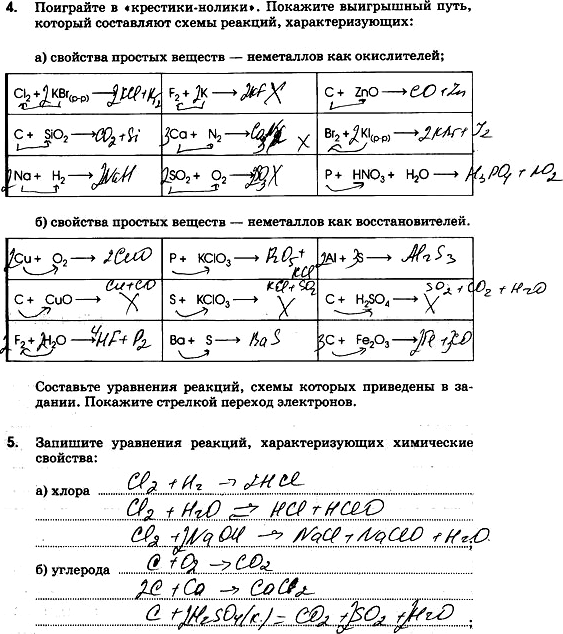 4. Поиграйте в «крестики-нолики». Покажите выигрышный путь,
который составляют схемы реакций, характеризующих:
а) свойства простых веществ — неметаллов как окислителей;
Cl₂+2KBr(р-р) → 2KCl+Br₂ F₂+2K → 2KF X C + ZnO → CO+Zn
C + SiO₂ → CO₂+Si 3Ca + N₂ → X Br₂+2KI(р-р) → 2KBr+I₂
2Na + H₂ → 2NaH 2SO₂ + O₂ → 2SO₃ X P + HNO₃ + H₂O → H₃PO₄ + NO₂
б) свойства простых веществ — неметаллов как восстановителей.
2Cu + O₂ → 2CuO P + KClO₃ → P₂O₅ + KCl 2Al + 3S → Al₂S₃
C + CuO → Cu+CO X S + KClO₃ → KCl+SO₂ X C + H₂SO₄ → SO₂+CO₂+H₂O X
2F₂+2H₂O → 4HF+P₂ Ba + S → BaS 3C + Fe₂O₃ → 2Fe+3CO
Составьте уравнения реакций, схемы которых приведены в за-
дании. Покажите стрелкой переход электронов.
5. Запишите уравнения реакций, характеризующих химические
свойства:
а) хлора Cl₂ + H₂ → 2HCl
Cl₂ + H₂O ⇄ HCl + HClO
Cl₂ + 2NaOH → NaCl + NaClO + H₂O ;
б) углерода C + O₂ → CO₂
2C + Ca → CaC₂
C + 2H₂SO₄(к) = CO₂ + 2SO₂ + 2H₂O ;